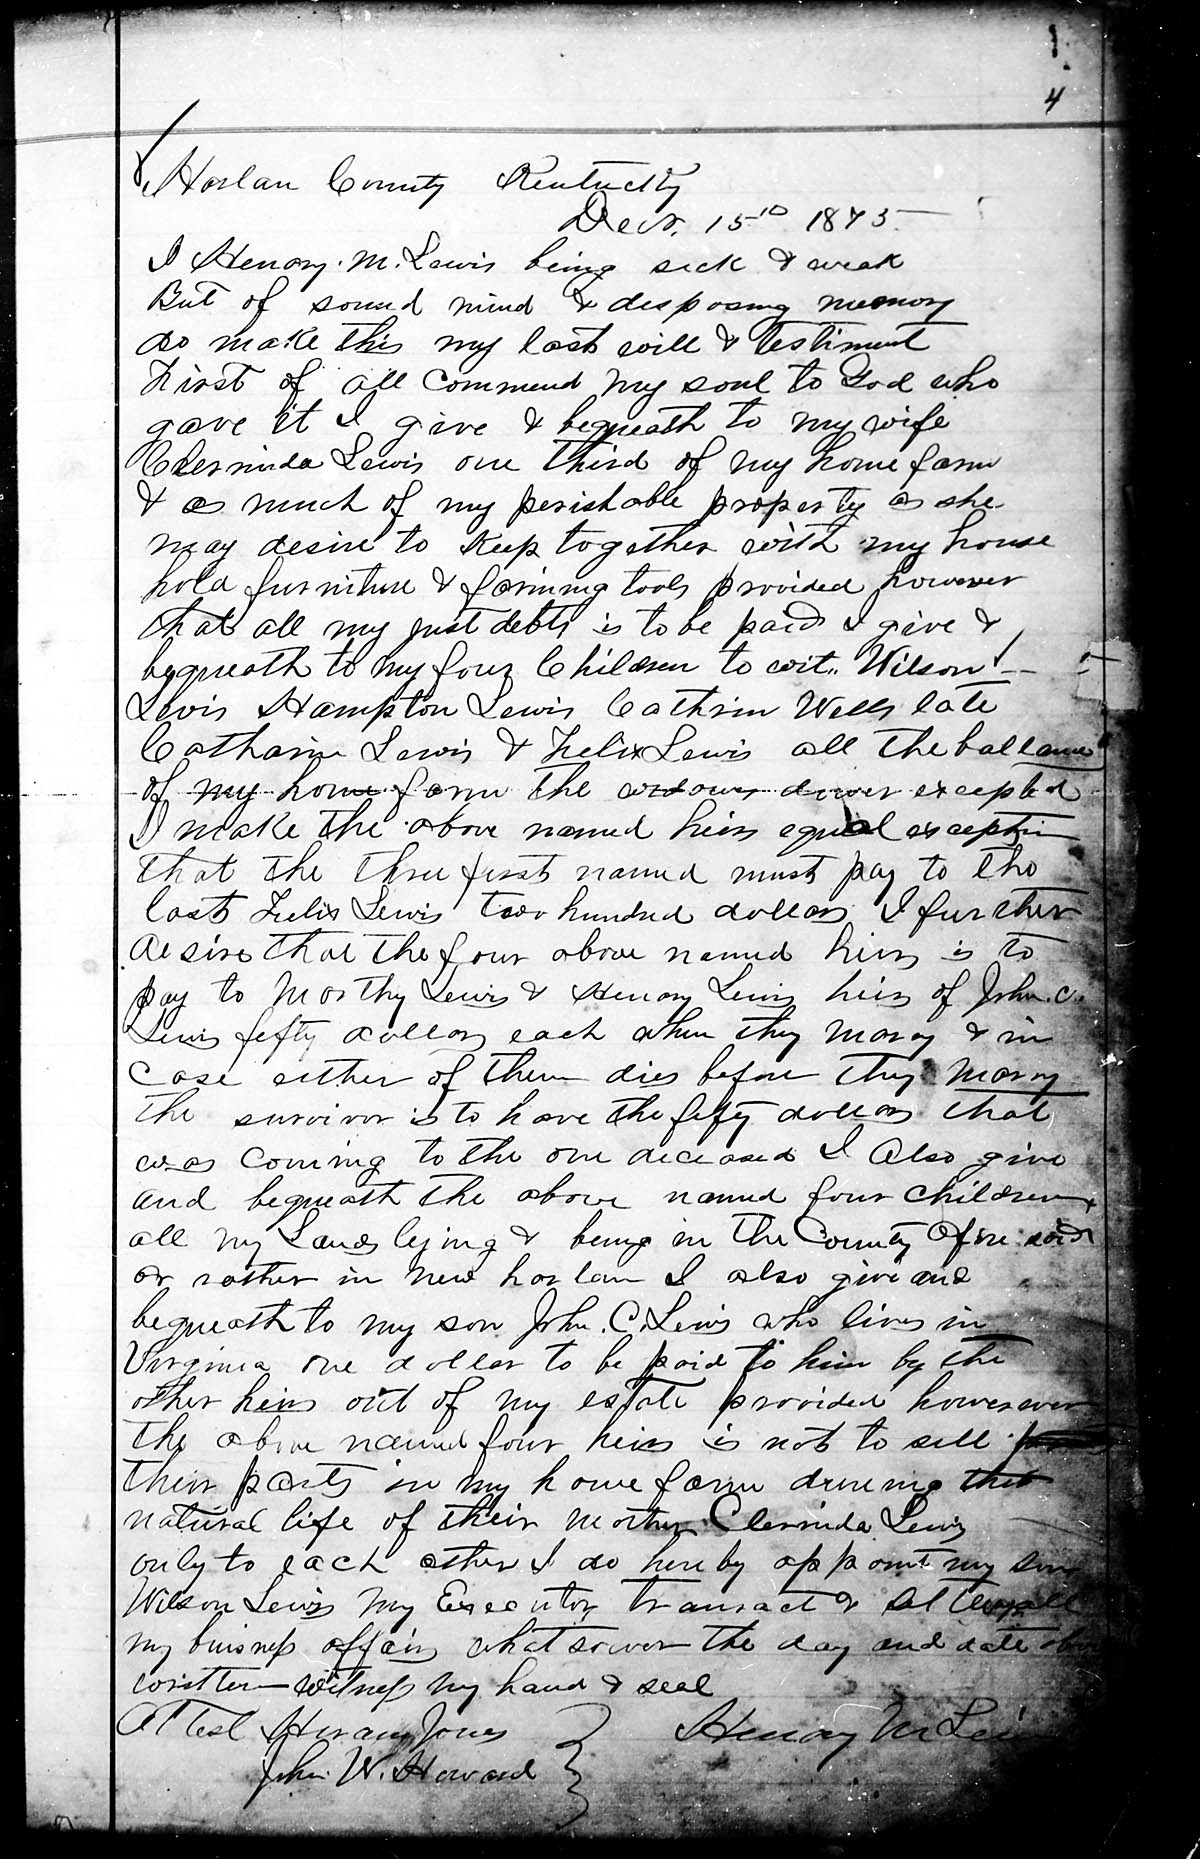 4
Harlan County Kentucky
Decr. 15th 1875
I Henary. M. Lewis being sick & weak
But of sound mind & desposing memory
do make this my last will & testiment
First of all commend my soul to God who
gave it I give & bequeath to my wife
Clerinda Lewis one third of my home farm
& as much of my perishable property as she
may desire to keep together with my house
hold furniture & farming tools provided however
that all my just debts is to be paid I give &
bequeath to my four Children to wit.. Wilson
Lewis Hampton Lewis Cathrin Wells late
Catharin Lewis & Felix Lewis all the ballance
of my home farm the widows dower excepted
I make the above named heirs equal exceptin
that the three first named must pay to the
last Felix Lewis two hundred dollars I further
desire that the four above named heirs is to
pay to Marthy Lewis & Henary Lewis heirs of John. C.
Lewis fefty dollars each when they marry & in
case either of them dies before they marry
the survivor is to have the fefty dollars that
was coming to the one deceased I Also give
and bequeath the above named four children
all my Lands lying & being in the County Afore said
or rather in new harlan I also give and
bequeath to my son John. C. Lewis who lives in
Virginia one dollar to be paid to him by the
other heirs out of my estate provided howerever
the above named four heirs is not to sell
their parts in my home farm dureing the
natural life of their mother Clerinda Lewis
only to each other I do hereby appoint my son
Wilson Lewis my Executor transact & all
my buisness affairs whatsower the day and date
written witness my hand & seal
Attest Hiram Jones Henary M Lewis
John W. Howard